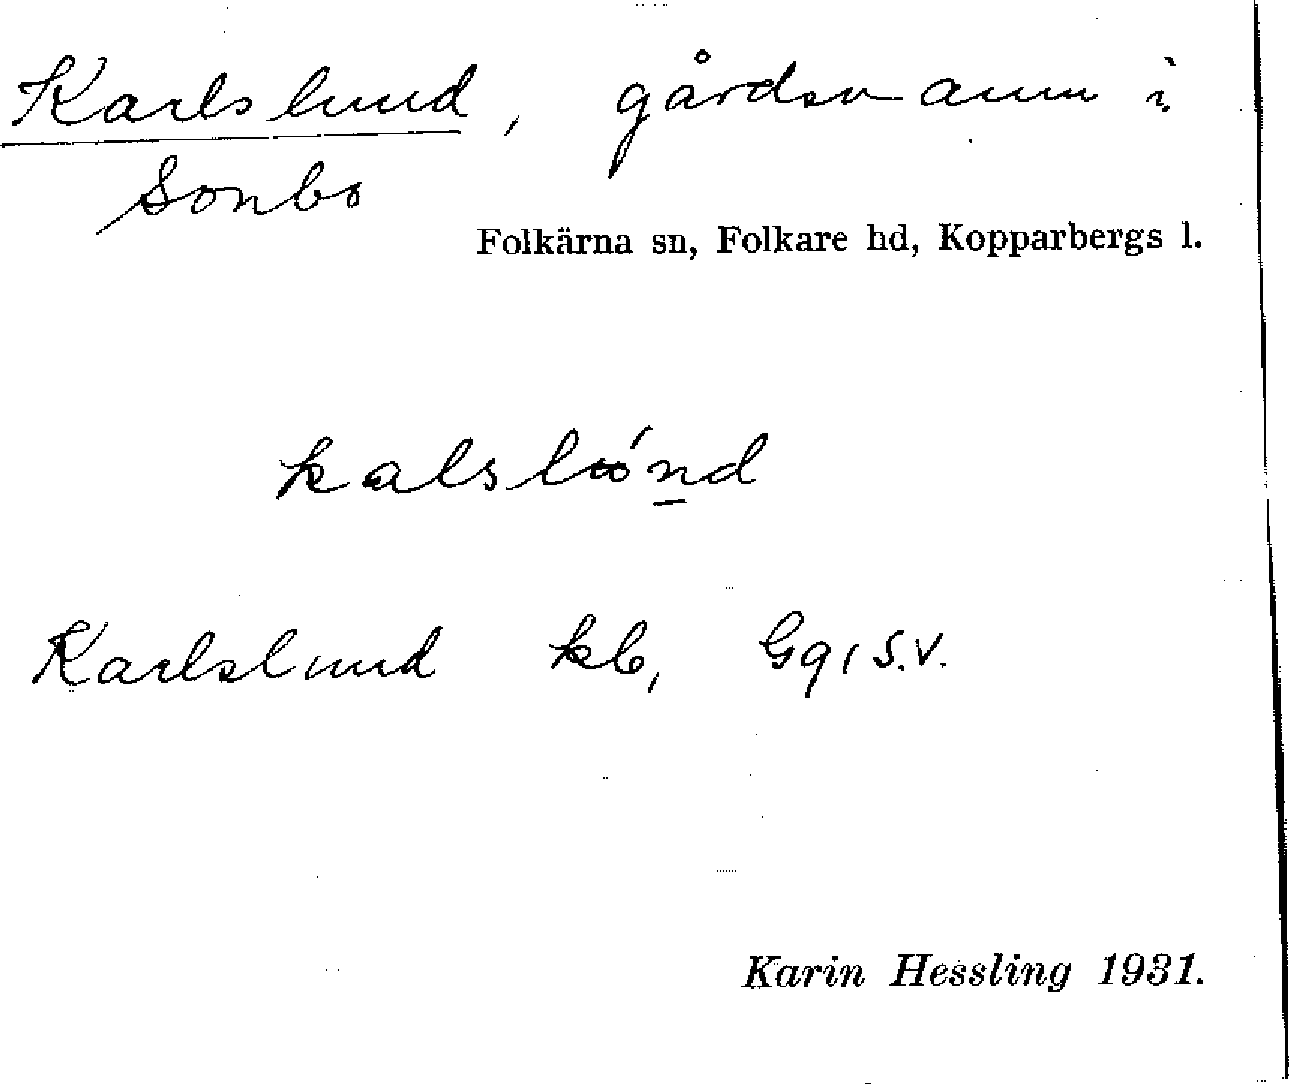 Karlslund, gårdsnamn i
Sonbo
Folkärna sn, Folkare hd, Kopparbergs l.
kalslώn̲d
Karlslund kb, Gg, S.V.
Karin Hessling 1931.